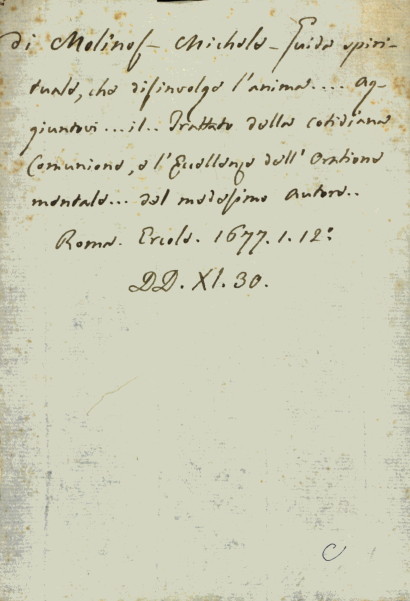 di Molinos - Michele - Guida spiri-
tuale, che disinvolge l'anima.... Ag-
giuntovi... il.. Trattato della cotidiana
Comunione, e l'Eccellenze dell'Oratione
mentale... del medesimo Autore..
Roma. Ercole. 1677. 1. 12°
DD. XI. 30.
C